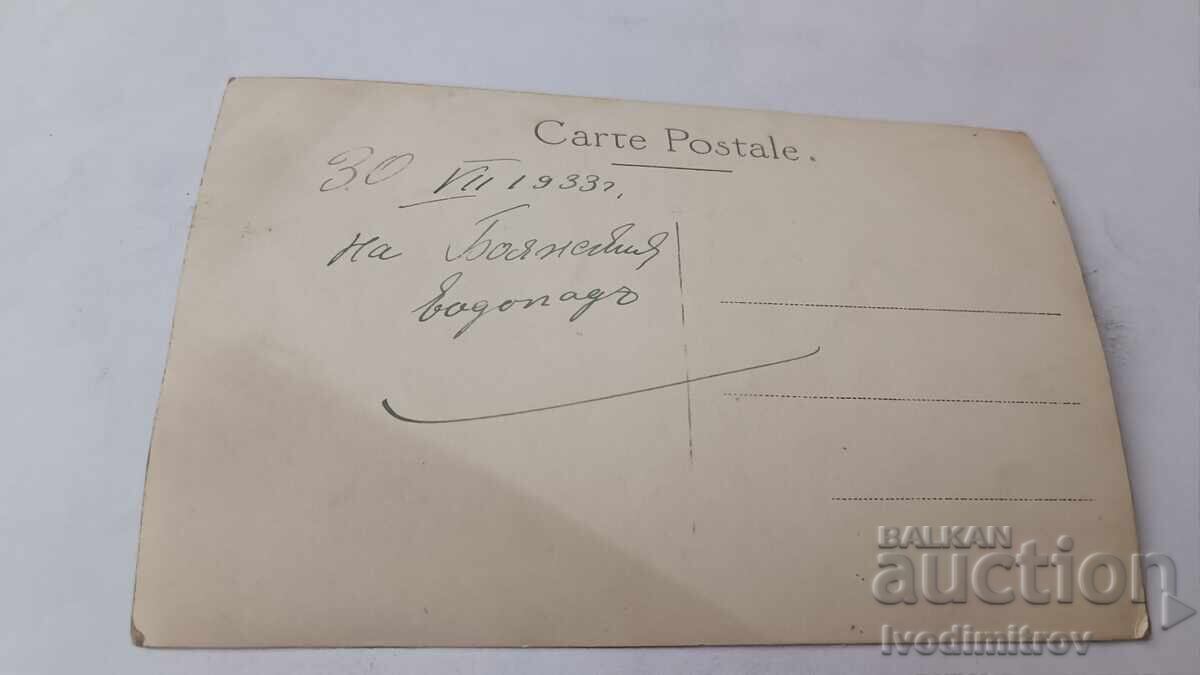 Carte Postale.
30 VII 1933 г.
на Боянския
водопадъ
BALKAN
auction
Ivodimitrov